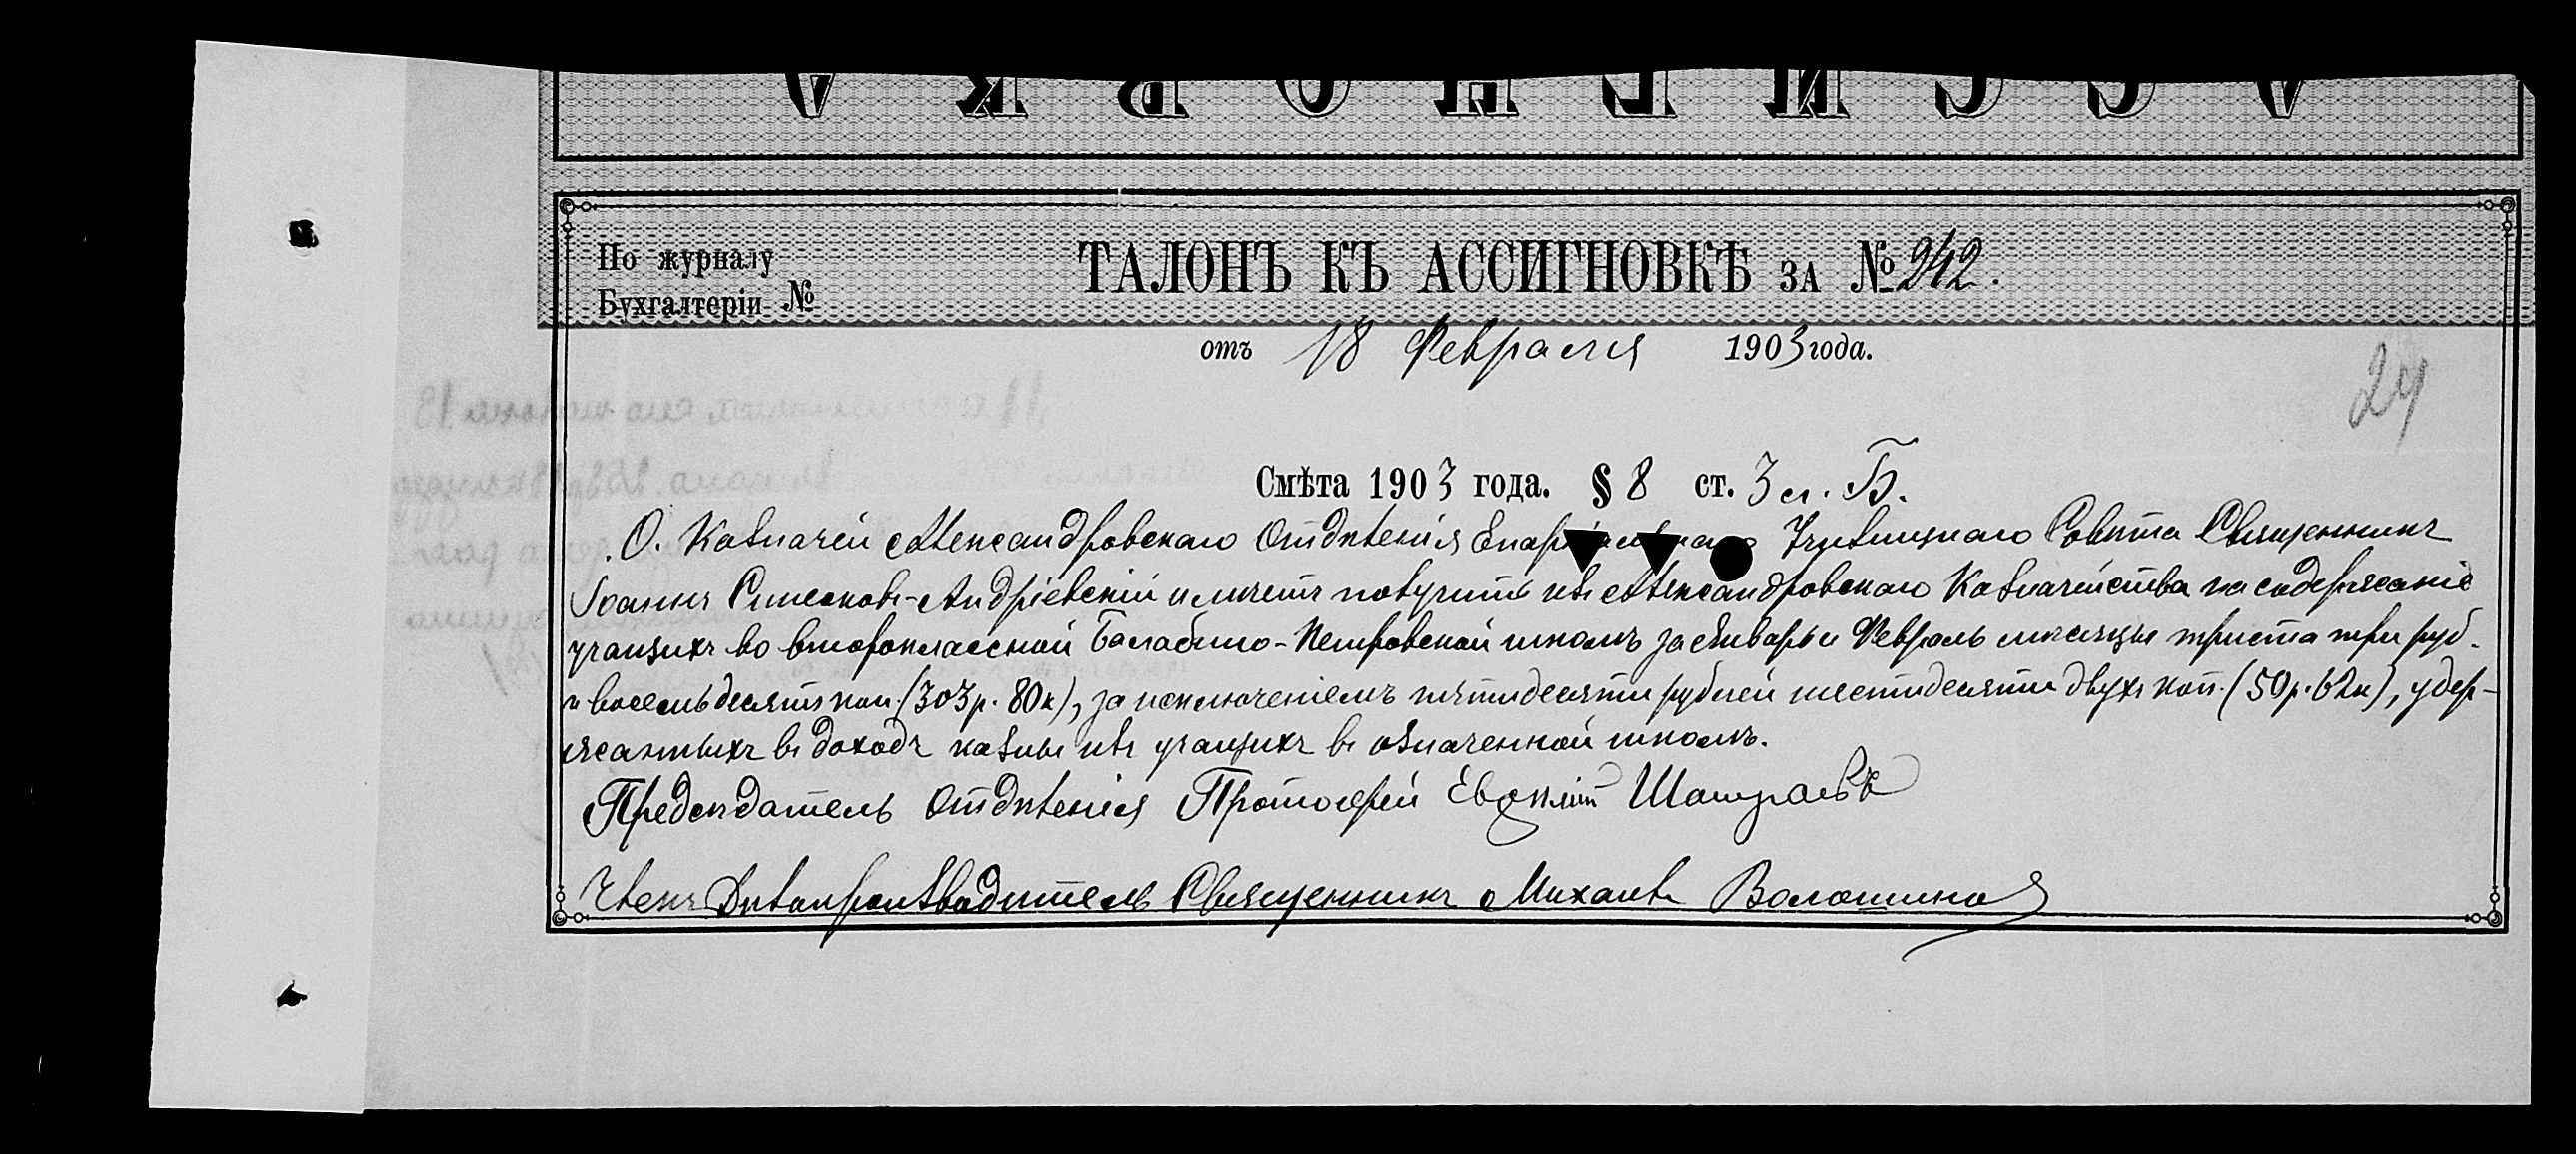 АССИГНОВКА
По журналу
Бухгалтеріи №
ТАЛОНЪ КЪ АССИГНОВКѢ ЗА № 242.
отъ 18 Февраля 1903 года.
24
Смѣта 1903 года. § 8 ст. 3 л. Б.
О. Казначей Александровскаго Отдѣленія Епархіальнаго Училищнаго Совѣта Священникъ
Іоаннъ Синеоковъ-Андріевскій имѣетъ получить изъ Александровскаго Казначейства на содержаніе
учащихъ во второклассной Балабино-Петровской школѣ за Январь и Февраль мѣсяцы триста три руб.
и восемьдесятъ коп. (303 р. 80 к), за исключеніемъ пятидесяти рублей шестидесяти двухъ коп. (50 р. 62 к), удер-
жанныхъ въ доходъ казны изъ учащихъ въ означенной школѣ.
Предсѣдатель Отдѣленія Протоіерей
Членъ Дѣлопроизводитель Священникъ Михаилъ Волошинов